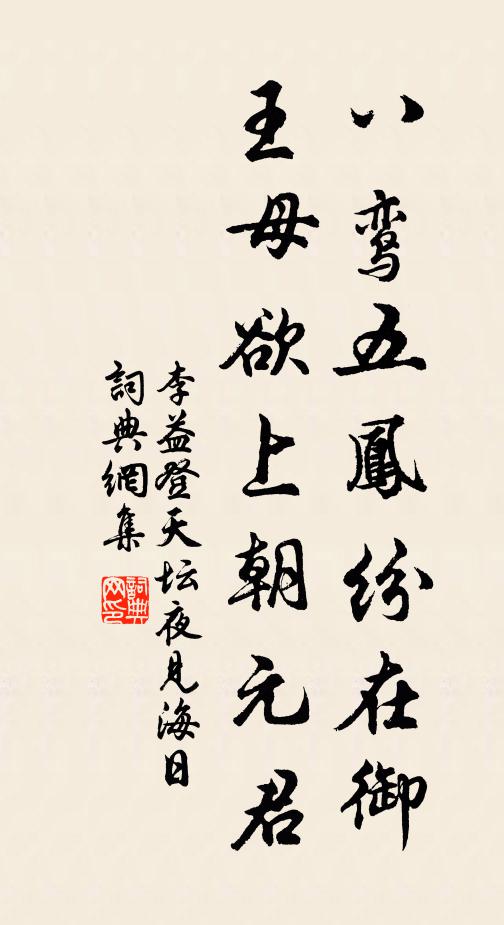 八鸾五鳳纷在御
王母欲上朝元君
李益登天坛夜見海日
詞典網集
詞典網印